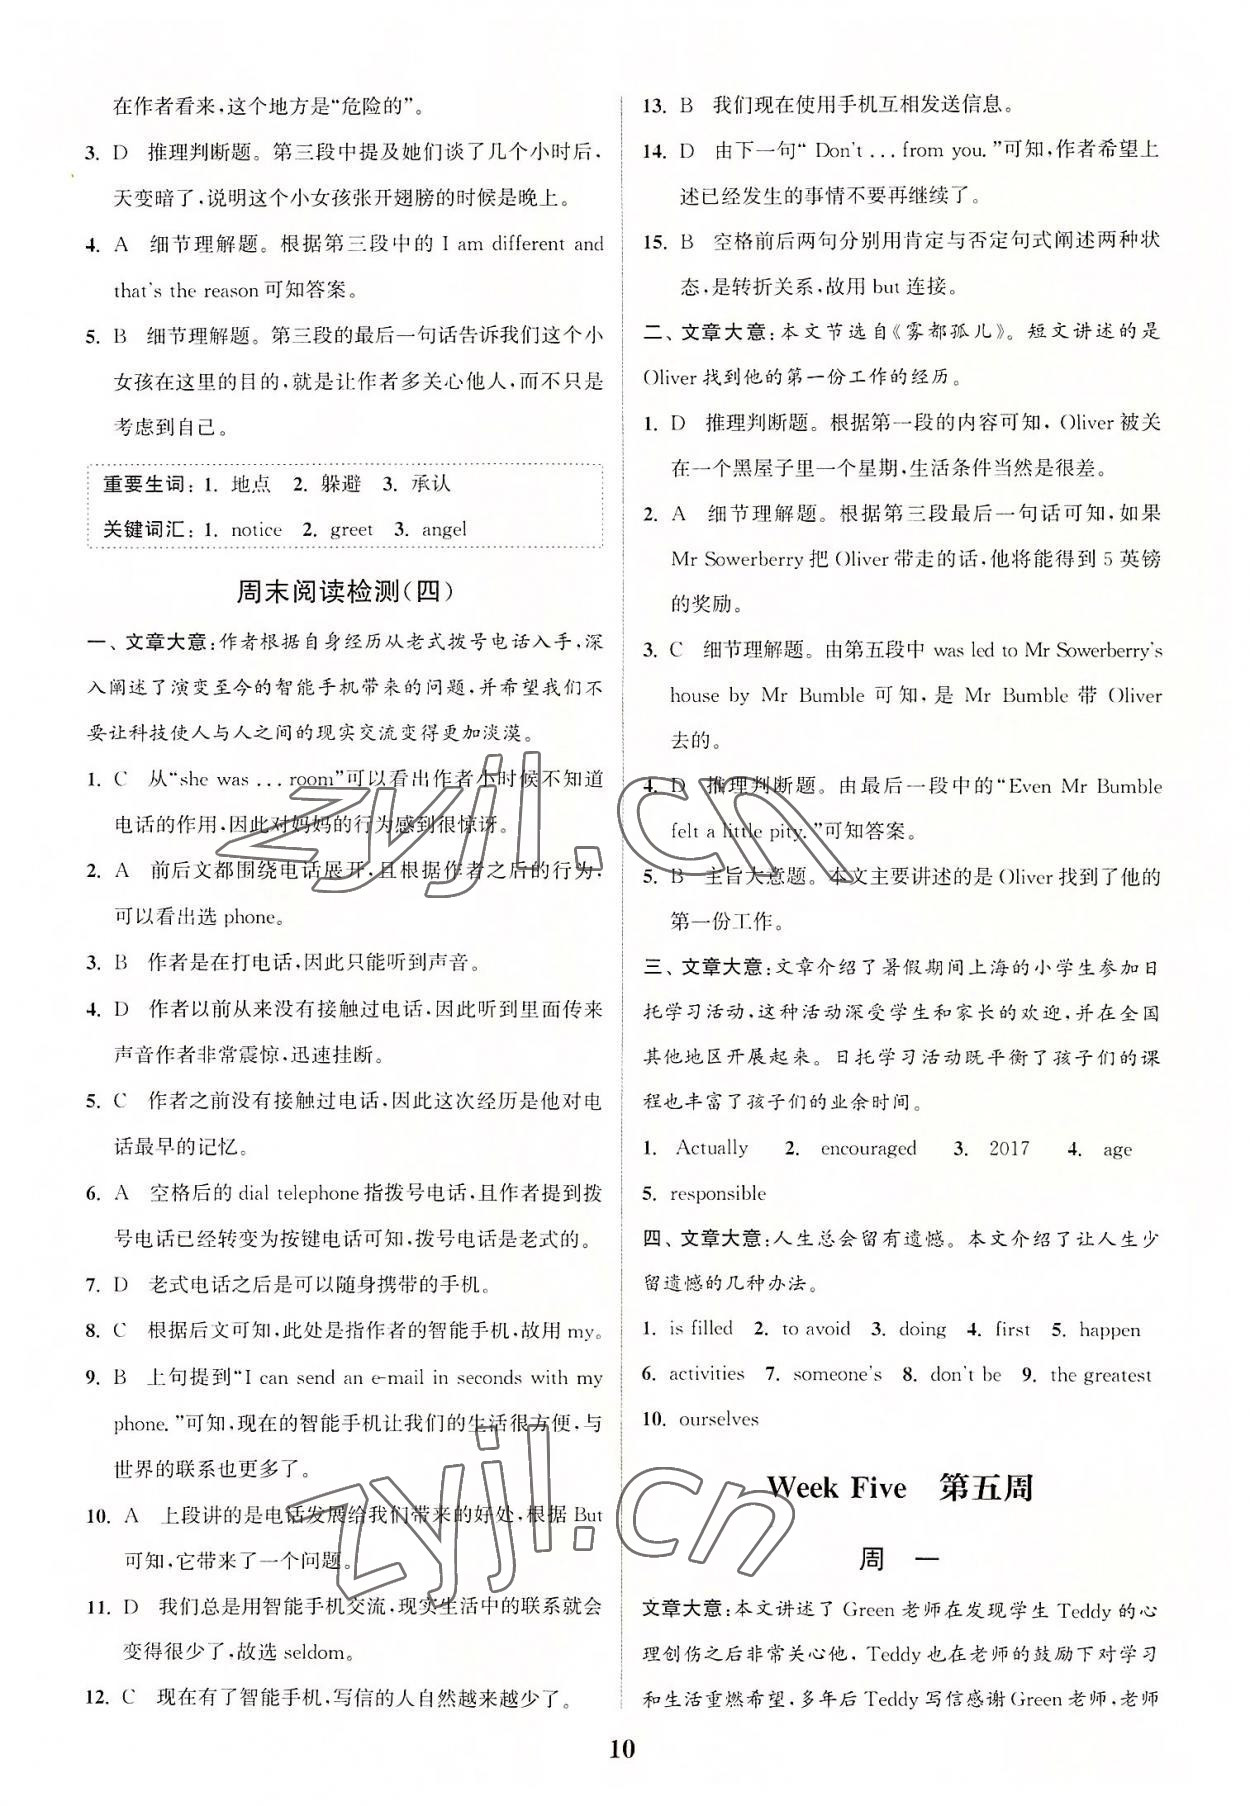 在作者看来,这个地方是“危险的”。
3. D 推理判断题。第三段中提及她们谈了几个小时后,
天变暗了,说明这个小女孩张开翅膀的时候是晚上。
4. A 细节理解题。根据第三段中的 I am different and
that's the reason 可知答案。
5. B 细节理解题。第三段的最后一句话告诉我们这个小
女孩在这里的目的,就是让作者多关心他人,而不只是
考虑到自己。
重要生词:1. 地点 2. 躲避 3. 承认
关键词汇:1. notice 2. greet 3. angel
周末阅读检测(四)
一、文章大意:作者根据自身经历从老式拨号电话入手,深
入阐述了演变至今的智能手机带来的问题,并希望我们不
要让科技使人与人之间的现实交流变得更加淡漠。
1. C 从“she was ... room”可以看出作者小时候不知道
电话的作用,因此对妈妈的行为感到很惊讶。
2. A 前后文都围绕电话展开,且根据作者之后的行为,
可以看出选 phone。
3. B 作者是在打电话,因此只能听到声音。
4. D 作者以前从来没有接触过电话,因此听到里面传来
声音作者非常震惊,迅速挂断。
5. C 作者之前没有接触过电话,因此这次经历是他对电
话最早的记忆。
6. A 空格后的 dial telephone 指拨号电话,且作者提到拨
号电话已经转变为按键电话可知,拨号电话是老式的。
7. D 老式电话之后是可以随身携带的手机。
8. C 根据后文可知,此处是指作者的智能手机,故用 my。
9. B 上句提到“I can send an e-mail in seconds with my
phone.”可知,现在的智能手机让我们的生活很方便,与
世界的联系也更多了。
10. A 上段讲的是电话发展给我们带来的好处,根据 But
可知,它带来了一个问题。
11. D 我们总是用智能手机交流,现实生活中的联系就会
变得很少了,故选 seldom。
12. C 现在有了智能手机,写信的人自然越来越少了。
13. B 我们现在使用手机互相发送信息。
14. D 由下一句“Don't ... from you.”可知,作者希望上
述已经发生的事情不要再继续了。
15. B 空格前后两句分别用肯定与否定句式阐述两种状
态,是转折关系,故用 but 连接。
二、文章大意:本文节选自《雾都孤儿》。短文讲述的是
Oliver 找到他的第一份工作的经历。
1. D 推理判断题。根据第一段的内容可知,Oliver 被关
在一个黑屋子里一个星期,生活条件当然是很差。
2. A 细节理解题。根据第三段最后一句话可知,如果
Mr Sowerberry 把 Oliver 带走的话,他将能得到 5 英镑
的奖励。
3. C 细节理解题。由第五段中 was led to Mr Sowerberry's
house by Mr Bumble 可知,是 Mr Bumble 带 Oliver
去的。
4. D 推理判断题。由最后一段中的“Even Mr Bumble
felt a little pity.”可知答案。
5. B 主旨大意题。本文主要讲述的是 Oliver 找到了他的
第一份工作。
三、文章大意:文章介绍了暑假期间上海的小学生参加日
托学习活动,这种活动深受学生和家长的欢迎,并在全国
其他地区开展起来。日托学习活动既平衡了孩子们的课
程也丰富了孩子们的业余时间。
1. Actually 2. encouraged 3. 2017 4. age
5. responsible
四、文章大意:人生总会留有遗憾。本文介绍了让人生少
留遗憾的几种办法。
1. is filled 2. to avoid 3. doing 4. first 5. happen
6. activities 7. someone's 8. don't be 9. the greatest
10. ourselves
Week Five 第五周
周 一
文章大意:本文讲述了 Green 老师在发现学生 Teddy 的心
理创伤之后非常关心他,Teddy 也在老师的鼓励下对学习
和生活重燃希望,多年后 Teddy 写信感谢 Green 老师,老师
10
zyjl.cn
zyjl.cn